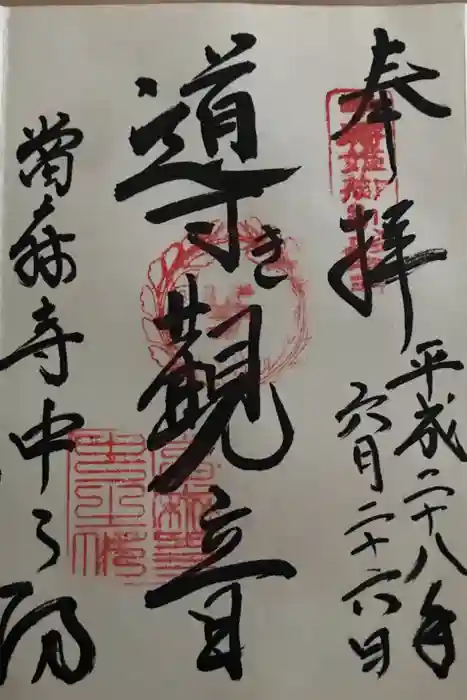 奉拝
平成二十八年
六月二十六日
導き観音
當麻寺中之坊